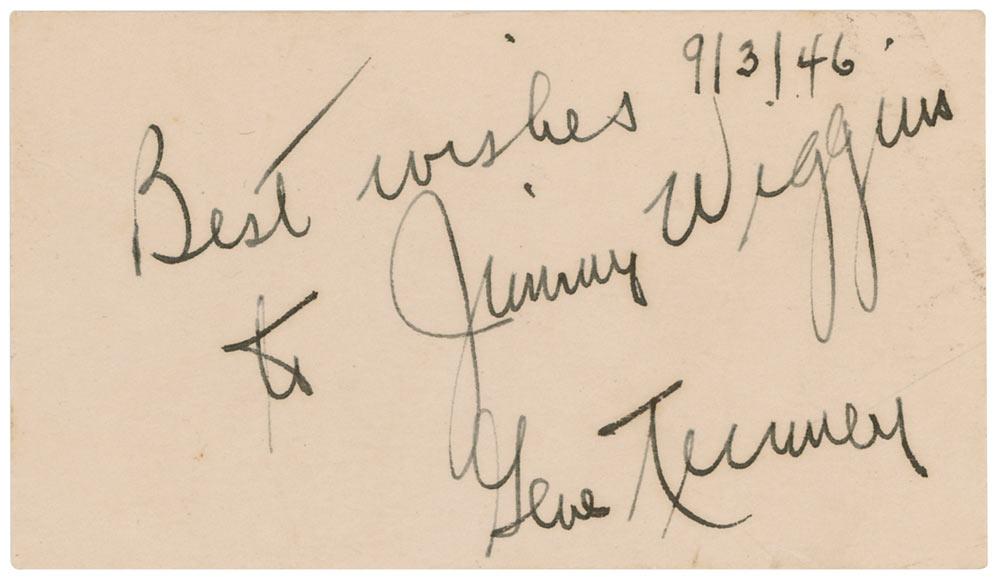 9/3/46
Best wishes
to Jimmy Wiggins
Gene Tunney